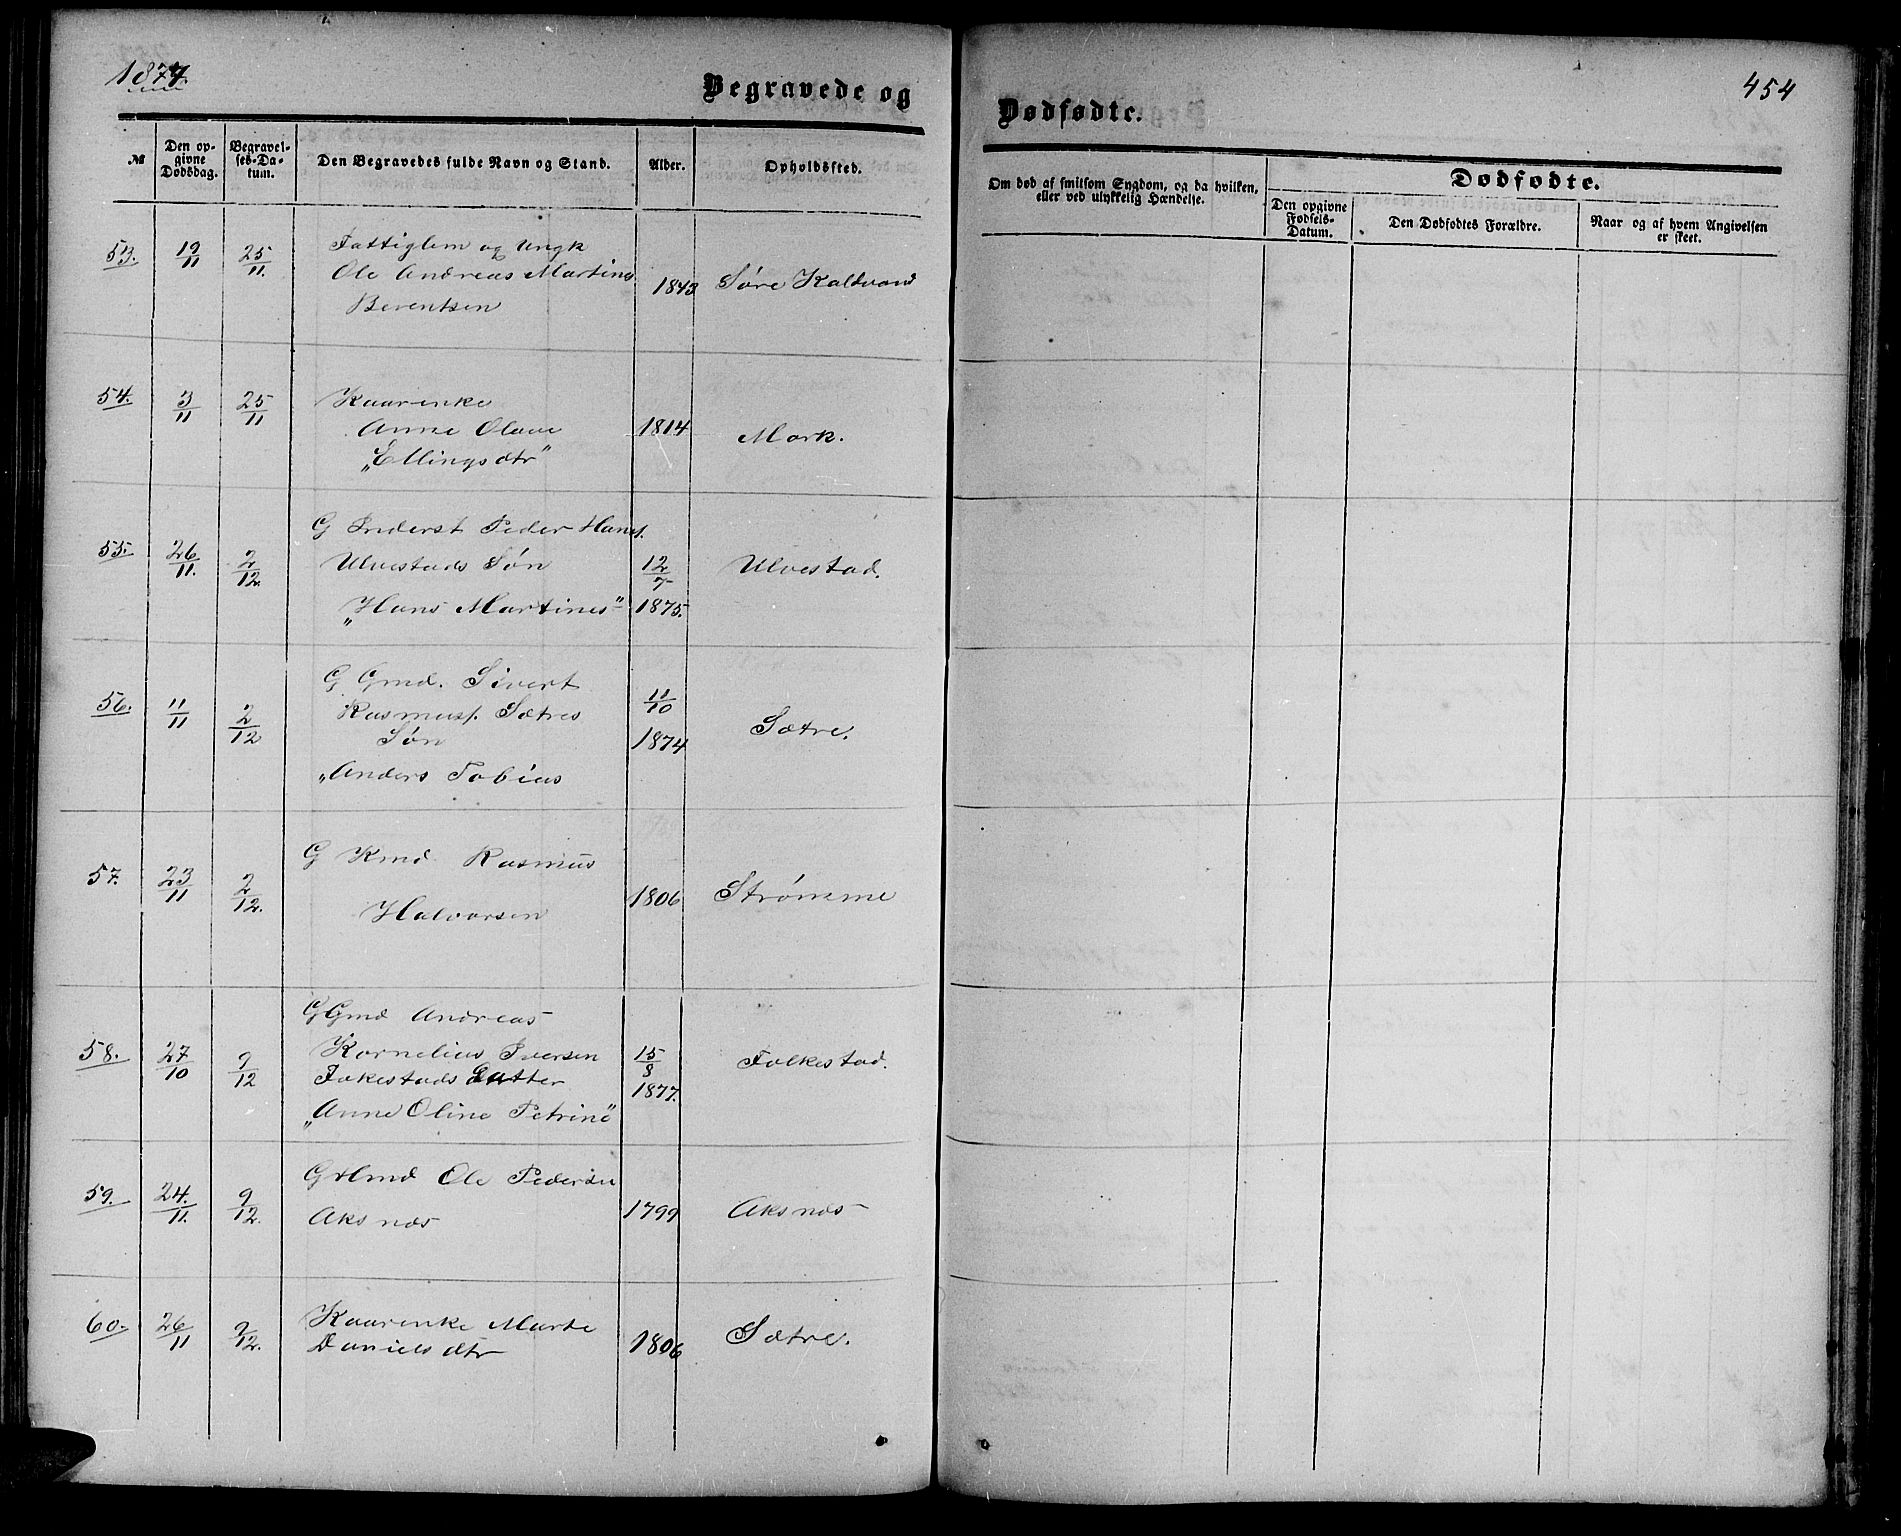 1877.
454
Begravede og
Dødfødte.
№
Den op-
givne
Dødsdag.
Begravel-
ses-Da-
tum.
Den Begravedes fulde Navn og Stand.
Alder.
Opholdssted.
Om død af smitsom Sygdom, og da hvilken,
eller ved ulykkelig Hændelse.
Dødfødte.
Den opgivne
Fødsels-
Datum.
Den Dødfødtes Forældre.
Naar og af hvem Angivelsen
er skeet.
53. 12/11 25/11. Fattiglem og Ungk
Ole Andreas Martinus 1843 Søre Kaldvand
Berentsen
54. 3/11 25/11 Kaarenke
Anne Olave 1814 Mork.
„Ellingsdtr"
55. 26/11. 2/12. G Inderst Peder Hansf.
Ulvestads Søn 12/7 Ulvestad.
„Hans Martines" 1875.
56. 11/11 2/12 G. Gmd. Sivert
Rasmusf. Sætres 11/10 Sætre.
Søn 1874
„Anders Tobias
57. 23/11 2/12. G Kmd Rasmus
Halvorsen 1806 Strømme
58. 27/10 9/12 G Gmd Andreas
Kornelius Iversen 15/8 Folkestad.
Folkestads Datter 1877.
„Anne Oline Petrine"
59. 24./11. 9/12. Ole Pedersen
Aksnæs 1799 Aksnæs
60. 26/11 9/12. Kaarenke Marte
Daniels dtr 1806 Sætre.